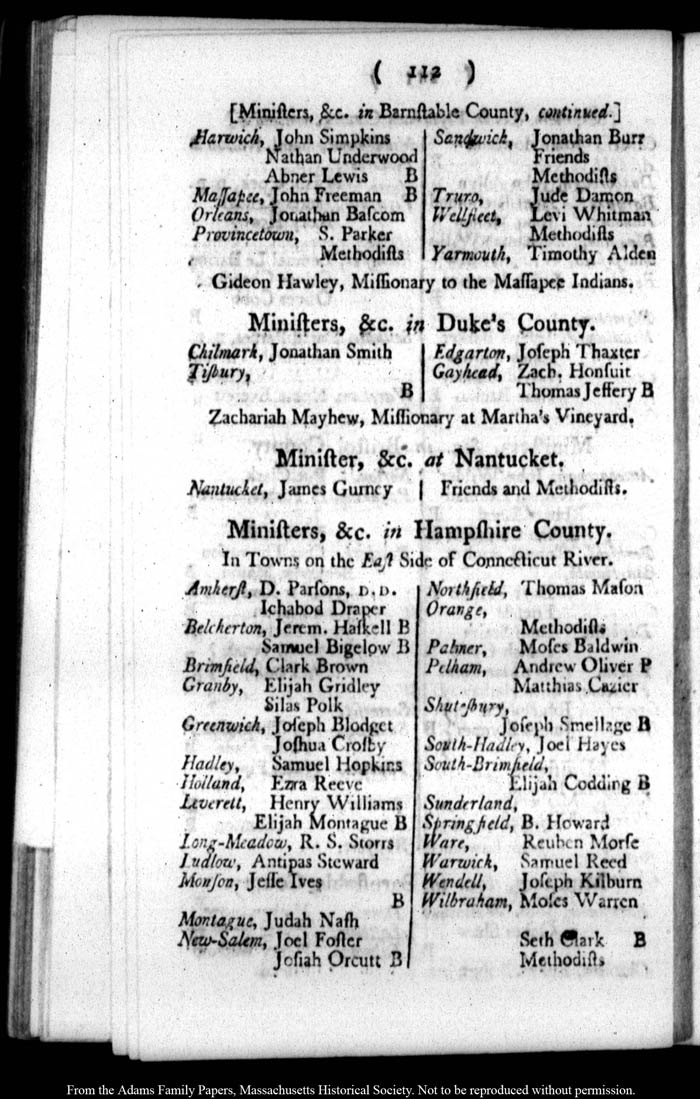 ( 112 )
[Miniſters, &c. in Barnſtable County, continued.]
Harwich, John Simpkins
Nathan Underwood
Abner Lewis B
Maſſapee, John Freeman B
Orleans, Jonathan Baſcom
Provincetown, S. Parker
Methodiſts
Sandwick, Jonathan Burr
Friends
Methodiſts
Truro, Jude Damon
Wellfleet, Levi Whitman
Methodiſts
Yarmouth, Timothy Alden
Gideon Hawley, Miſſionary to the Maſſapee Indians.
Miniſters, &c. in Duke's County.
Chilmark, Jonathan Smith
Tiſbury,
B
Edgarton, Joſeph Thaxter
Gayhead, Zach. Honſuit
Thomas Jeffery B
Zachariah Mayhew, Miſſionary at Martha's Vineyard.
Miniſter, &c. at Nantucket.
Nantucket, James Gurney | Friends and Methodiſts.
Miniſters, &c. in Hampſhire County.
In Towns on the Eaſt Side of Connecticut River.
Amherſt, D. Parſons, D. D.
Ichabod Draper
Belcherton, Jerem. Haſkell B
Samuel Bigelow B
Brimfield, Clark Brown
Granby, Elijah Gridley
Silas Polk
Greenwich, Joſeph Blodget
Joſhua Croſby
Hadley, Samuel Hopkins
Holland, Ezra Reeve
Leverett, Henry Williams
Elijah Montague B
Long-Meadow, R. S. Storrs
Ludlow, Antipas Steward
Monſon, Jeſſe Ives
B
Montague, Judah Naſh
New-Salem, Joel Foſter
Joſiah Orcutt B
Northfield, Thomas Maſon
Orange,
Methodiſts
Palmer, Moſes Baldwin
Pelham, Andrew Oliver P
Matthias Cazier
Shutſbury,
Joſeph Smellage B
South-Hadley, Joel Hayes
South-Brimfield,
Elijah Codding B
Sunderland,
Springfield, B. Howard
Ware, Reuben Morſe
Warwick, Samuel Reed
Wendell, Joſeph Kilburn
Wilbraham, Moſes Warren
Seth Clark B
Methodiſts
From the Adams Family Papers, Massachusetts Historical Society. Not to be reproduced without permission.